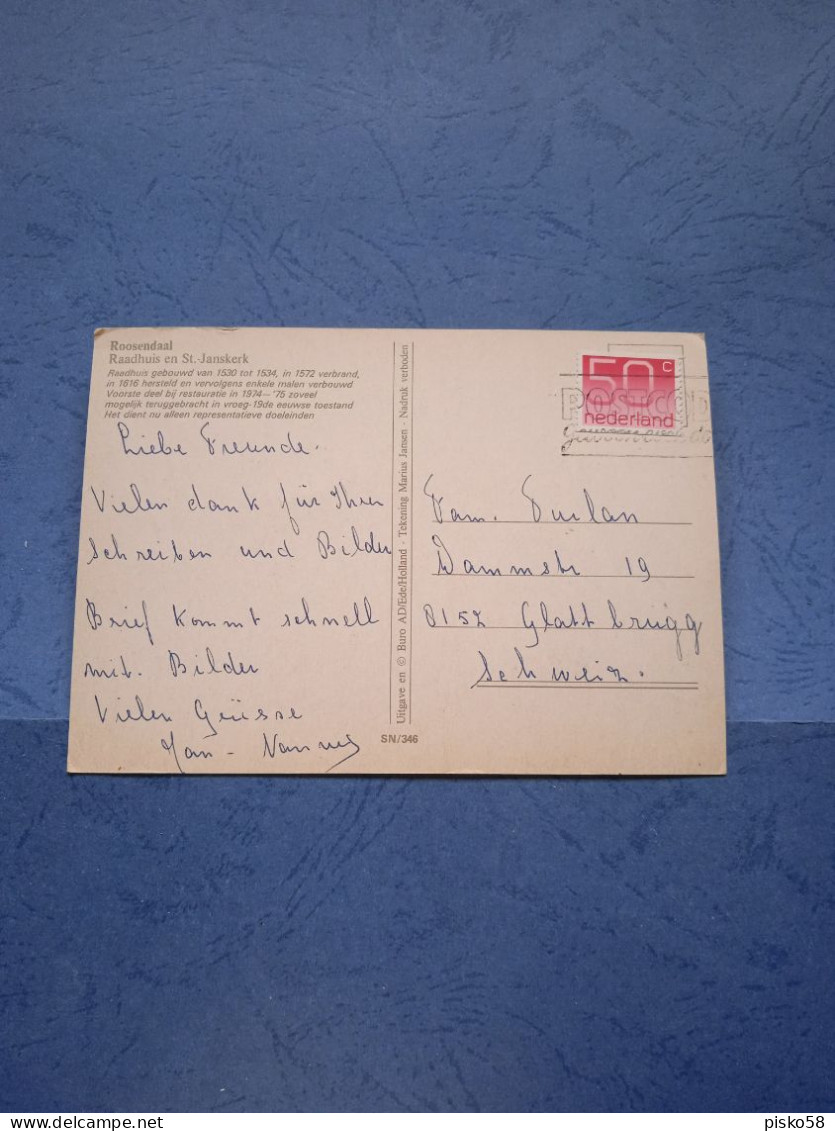 Roosendaal
Raadhuis en St.-Janskerk
Raadhuis gebouwd van 1530 tot 1534, in 1572 verbrand,
in 1816 hersteld en vervolgens enkele malen verbouwd
Voorste deel bij restauratie in 1974—'75 zoveel
mogelijk teruggebracht in vroeg-19de eeuwse toestand
Het dient nu alleen representatieve doeleinden
Liebe Freunde.
Vielen dank für Ihren
schreiben und Bilder
Brief kommt schnell
mit. Bilder
Vielen Grüsse
Uitgave en © Buro AD/Ede/Holland - Tekening Marius Jansen - Nadruk verboden
SN/346
50 c
nederland
Fam. Furlan
Dammstr 19
8152 Glattbrugg
Schweiz.
pisko58